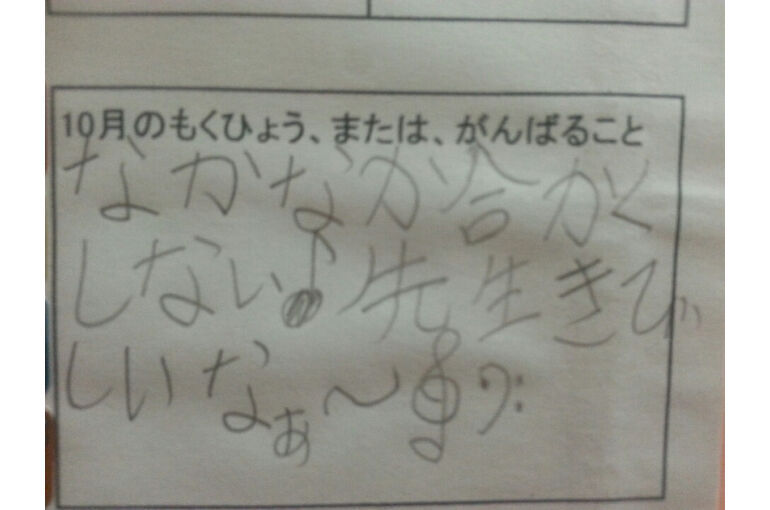 10月のもくひょう、または、がんばること
なかなか合かく
しない♪先生きび
しいなぁ〜𝄞𝄢